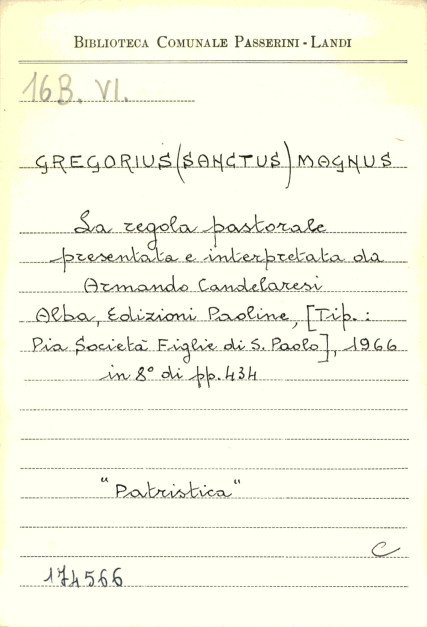 BIBLIOTECA COMUNALE PASSERINI - LANDI
16B. VI.
GREGORIUS (SANCTUS) MAGNUS
La regola pastorale
presentata e interpretata da
Armando Candelaresi
Alba, Edizioni Paoline, [Tip. :
Pia Società Figlie di S. Paolo], 1966
in 8° di pp. 434
"Patristica"
C
174566